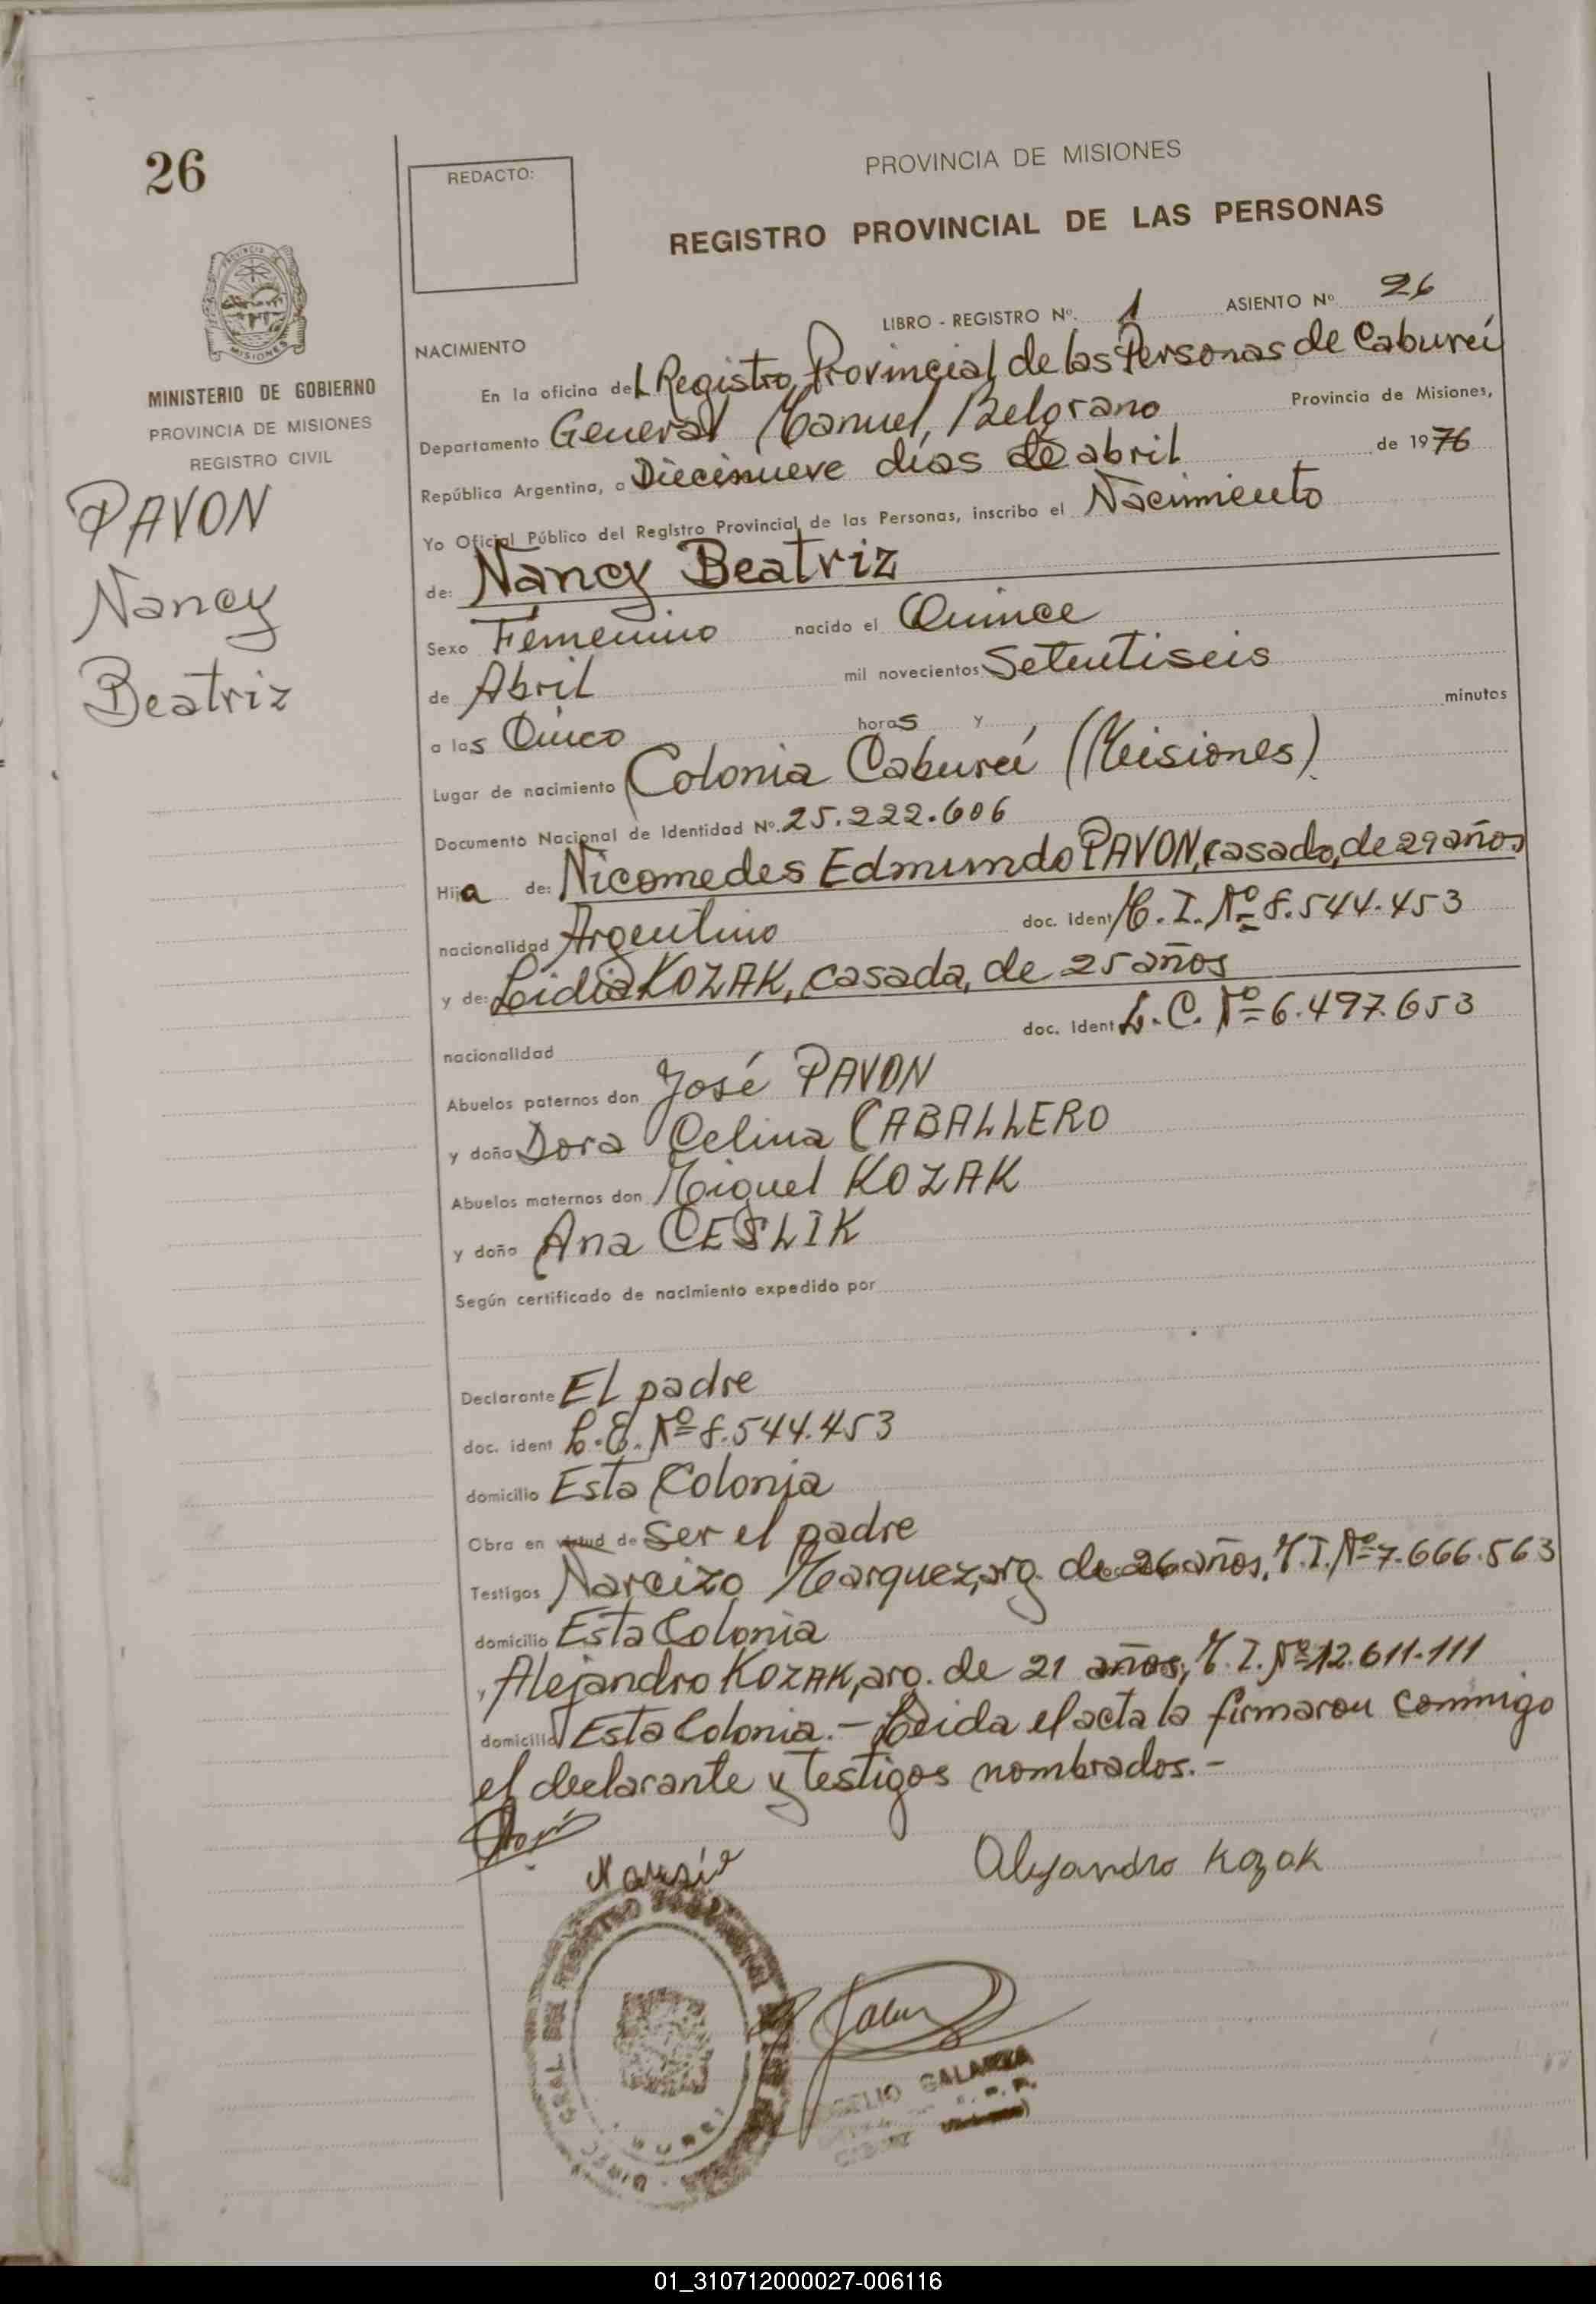 26
PROVINCIA DE MISIONES
REGISTRO PROVINCIAL DE LAS PERSONAS
REDACTO:
LIBRO - REGISTRO Nº. 1 ASIENTO Nº 26
MISIONES
MINISTERIO DE GOBIERNO
PROVINCIA DE MISIONES
REGISTRO CIVIL
PAVON
Nancy
Beatriz
NACIMIENTO
En la oficina del Registro Provincial de las Personas de Cabureí
Departamento General Manuel Belgrano Provincia de Misiones,
República Argentina, a Diecinueve días de abril de 1976
Yo Oficial Público del Registro Provincial de las Personas, inscribo el Nacimiento
de: Nancy Beatriz
Sexo Femenino nacido el Quince
de Abril mil novecientos Setentiseis
a las Cinco horas y minutos
Lugar de nacimiento Colonia Cabureí (Misiones)
Documento Nacional de Identidad Nº. 25.222.606
Hija de: Nicomedes Edmundo PAVON, casado, de 29 años
nacionalidad Argentino doc. ident M. I. Nº 8.544.453
y de: Lidia KOZAK, casada, de 25 años
nacionalidad doc. ident L. C. Nº 6.497.653
Abuelos paternos don José PAVON
y doña Dora Celina CABALLERO
Abuelos maternos don Miguel KOZAK
y doña Ana CESLIK
Según certificado de nacimiento expedido por
Declarante El padre
doc. ident L. E. Nº 8.544.453
domicilio Esta Colonia
Obra en virtud de Ser el padre
Testigos Narcizo Marquez, arg. de 26 años, M.I. Nº 7.666.563
domicilio Esta Colonia
, Alejandro KOZAK, arg. de 21 años, M. I. Nº 12.611.111
domicilio Esta Colonia.- Leida el acta la firmaron conmigo
el declarante y testigos nombrados.-
Alejandro Kozak
GALARZA
01_310712000027-006116